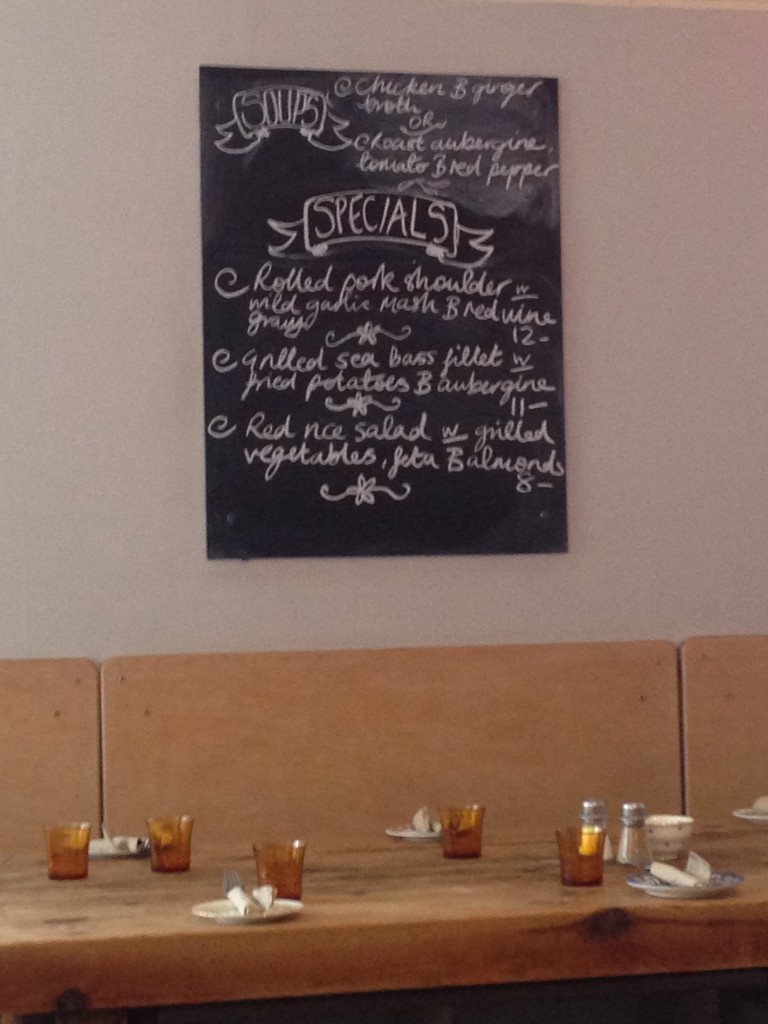 SOUPS
Chicken & ginger
broth
OR
Roast aubergine,
tomato & red pepper
SPECIALS
Rolled pork shoulder w
wild garlic mash & red wine
gravy
12-
Grilled sea bass fillet w
fried potatoes & aubergine
11-
Red rice salad w grilled
vegetables, feta & almonds
8-